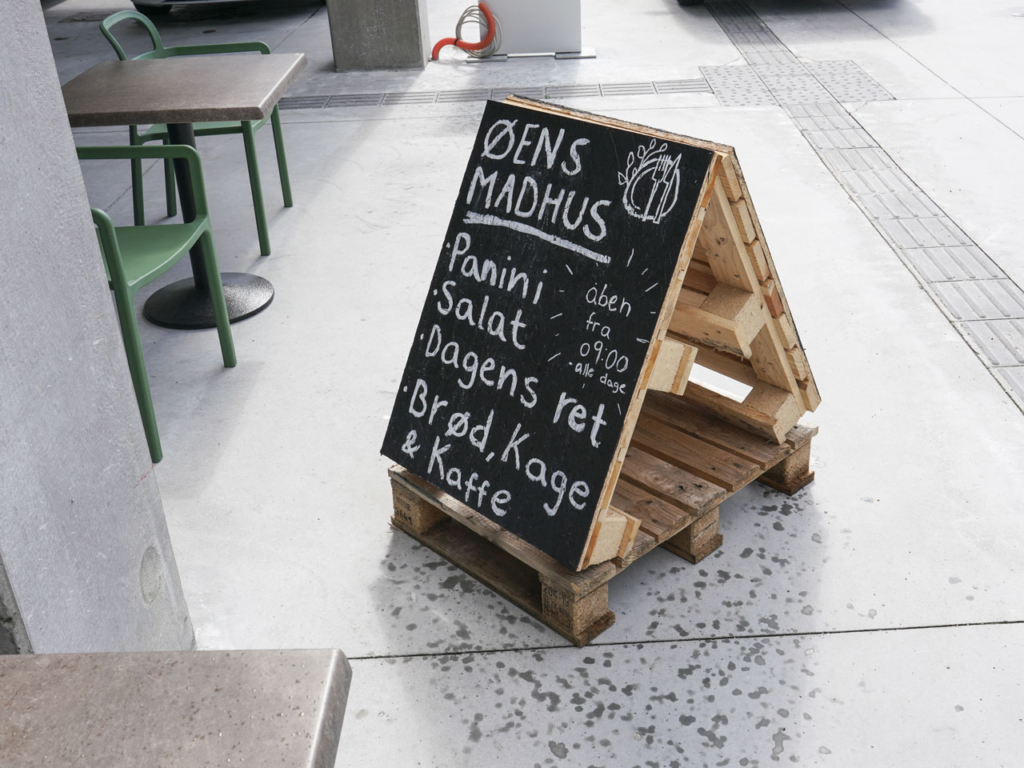 ØENS
MADHUS
·Panini
·Salat
·Dagens ret
·Brød, Kage
& Kaffe
åben
fra
09:00
-alle dage